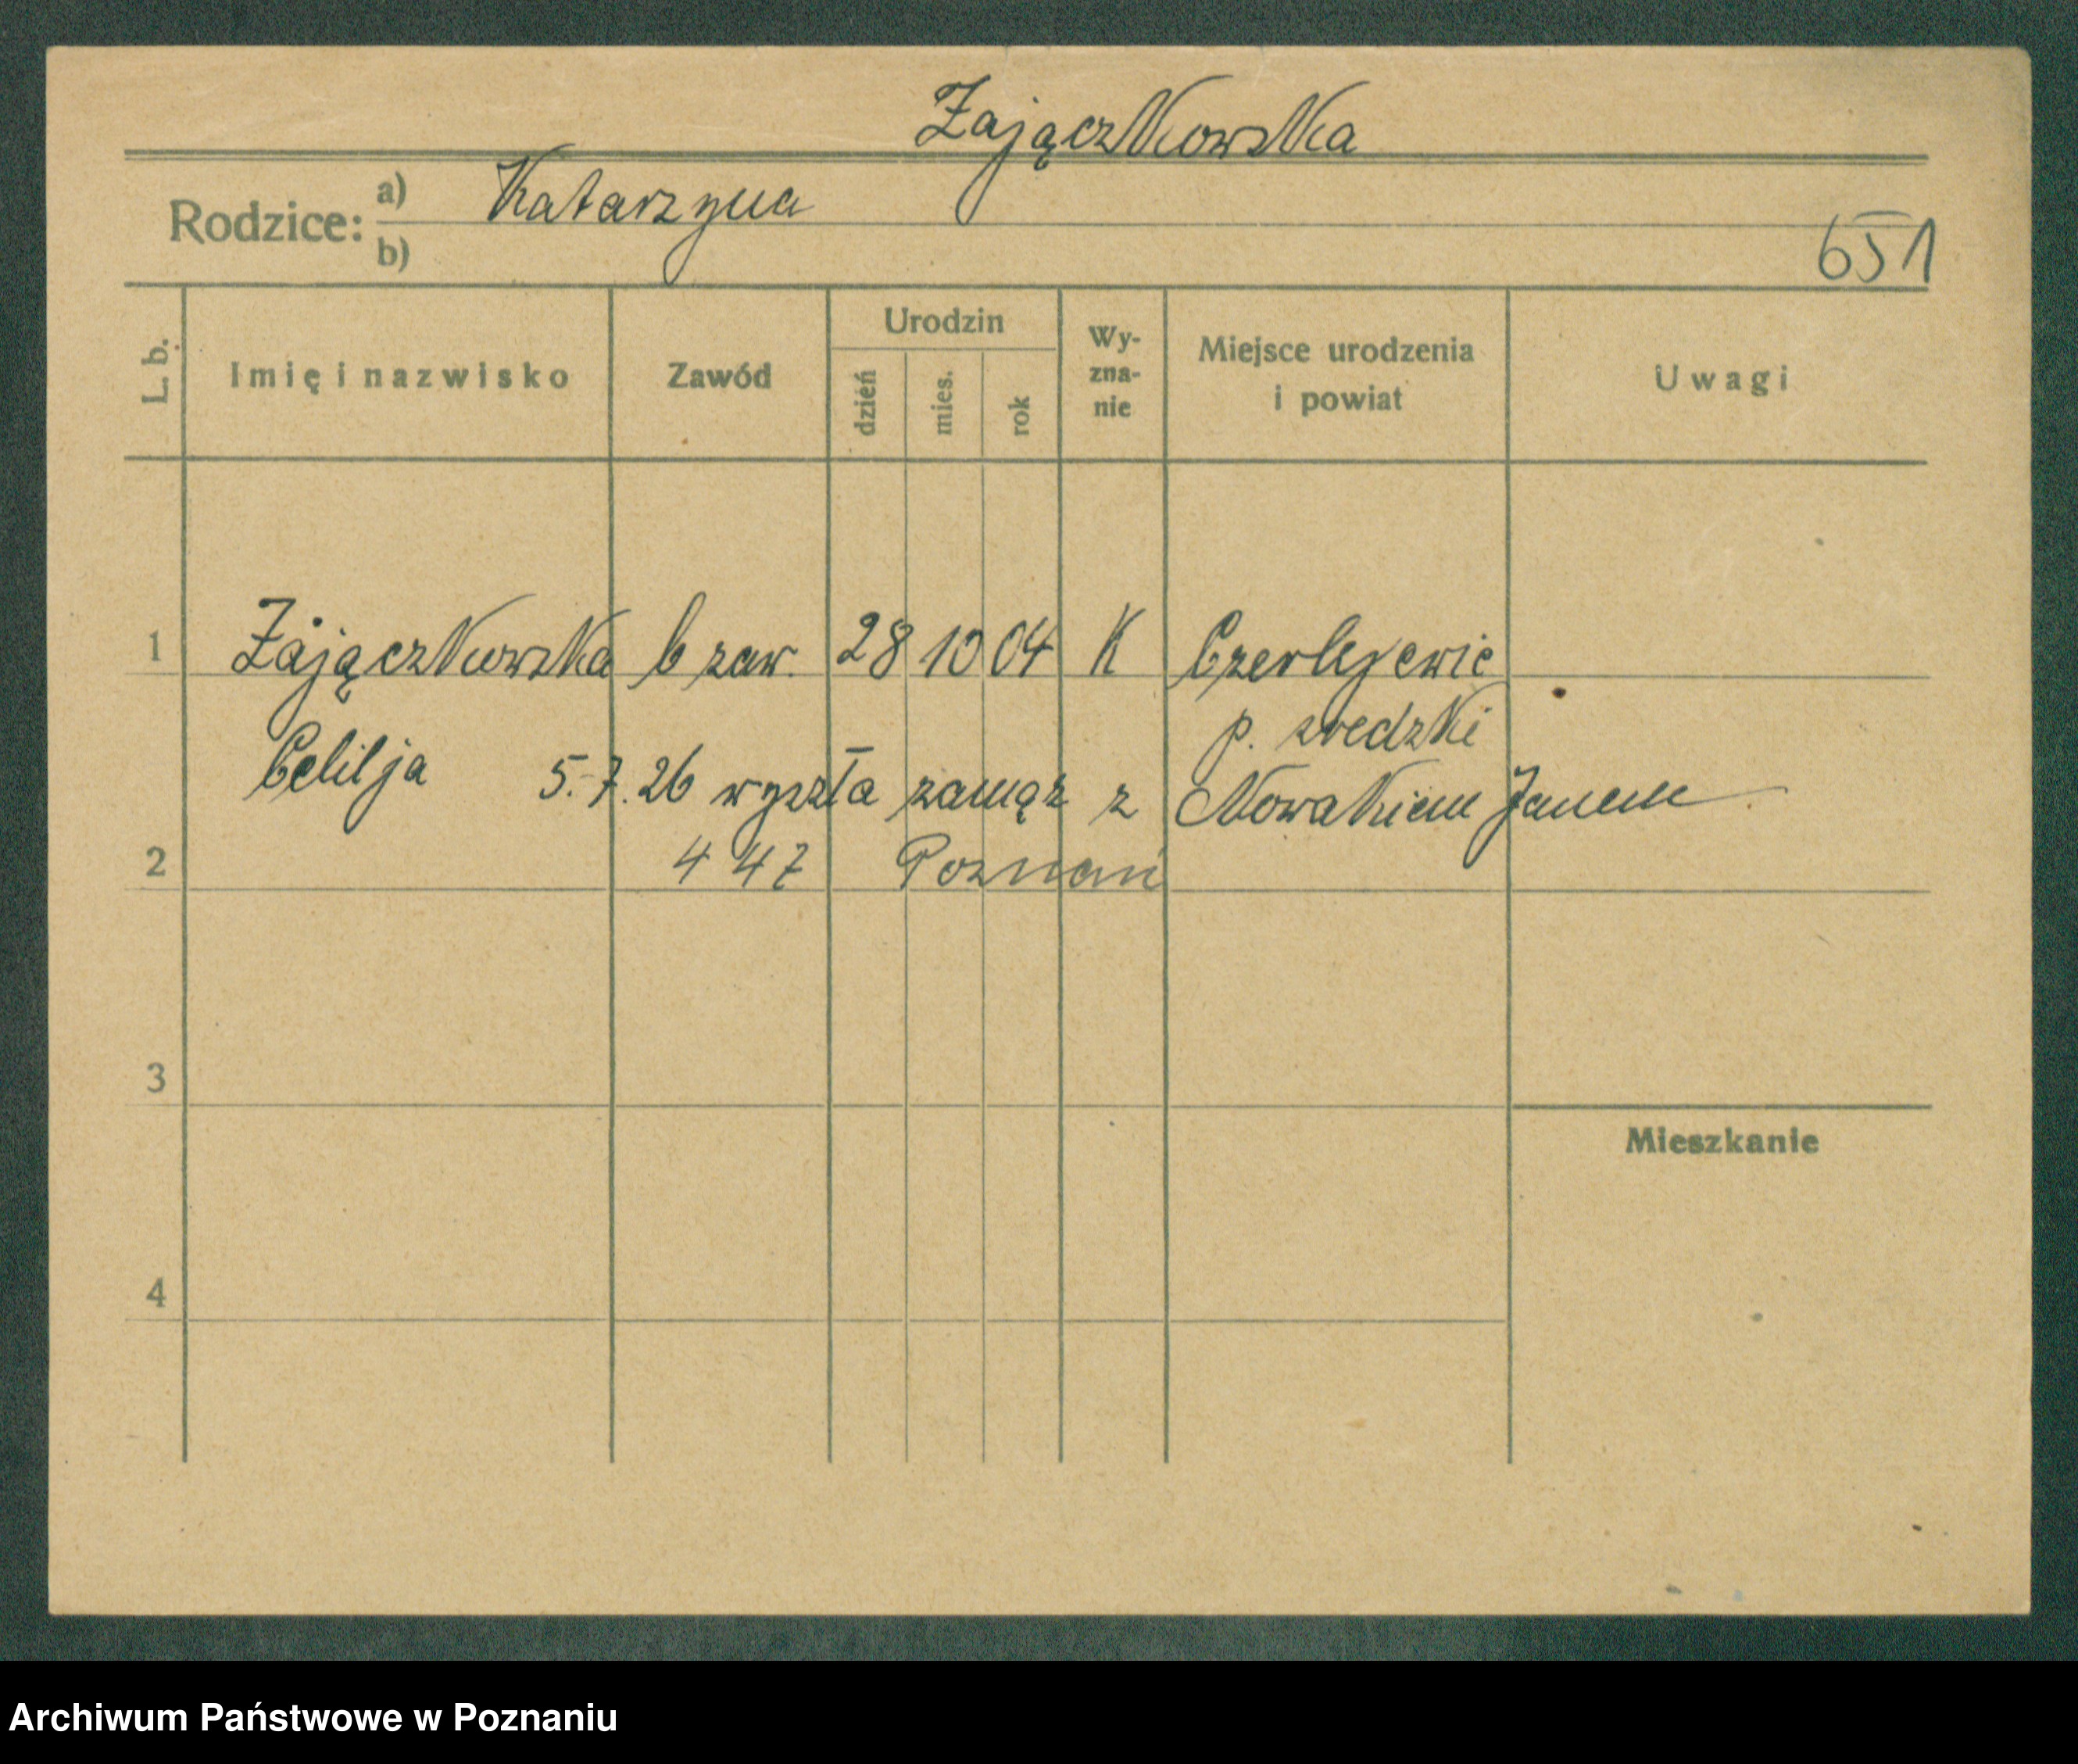 Zajączkowska
Rodzice: a) Katarzyna
b)
651
L. b. Imię i nazwisko Zawód Urodzin dzień mies. rok Wy-zna-nie Miejsce urodzenia i powiat Uwagi
1 Zajączkowska b zaw. 28 10 04 K Czerlejewie
p. sredzki
Celilja 5.7.26 wyszła zamąż z Nowakiem Janem
2 447 Poznań
3
Mieszkanie
4
Archiwum Państwowe w Poznaniu